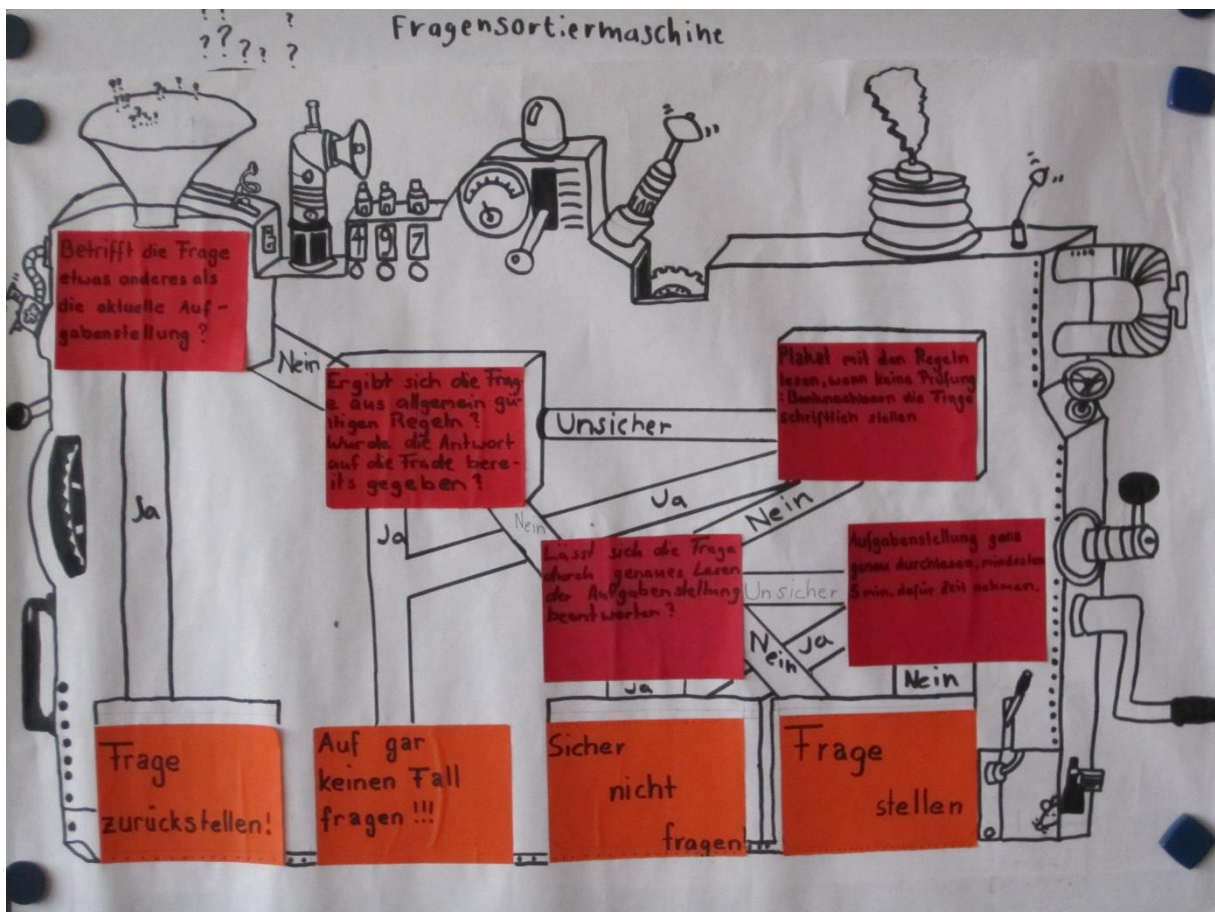 Fragensortiermaschine
? ?
? ? ? ? ? ?
4 9 7
Betrifft die Frage
etwas anderes als
die aktuelle Auf-
gabenstellung?
Nein
Ergibt sich die Frag-
e aus allgemein gü-
ltigen Regeln?
Wurde die Antwort
auf die Frade bere-
its gegeben?
Unsicher
Plakat mit den Regeln
lesen, wenn keine Prüfung
: Banknachbarn die Frage
schriftlich stellen
Ja
Ja
Nein
Ja
Nein
Lässt sich die Frage
durch genaues Lesen
der Aufgabenstellung
beantworten?
Unsicher
Aufgabenstellung ganz
genau durchlesen, mindesten
5 min. dafür Zeit nehmen.
Ja
Nein
Ja
Nein
Frage
zurückstellen!
Auf gar
keinen Fall
fragen !!!
Sicher
nicht
fragen
Frage
stellen